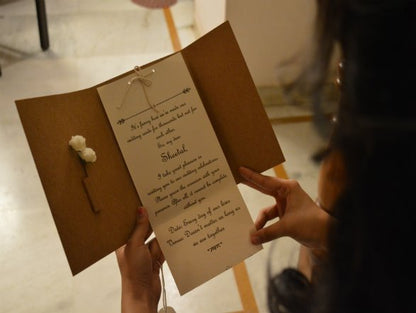 It's funny how we've made our
wedding cards for thousands but not for
each other.
For my dear
Sheetal
I take great pleasure in
inviting you to our wedding celebration.
Please grace the occasion with your
presence. After all, it cannot be complete
without you.
Date: Every day of our lives
Venue: Doesn't matter as long as
we are together